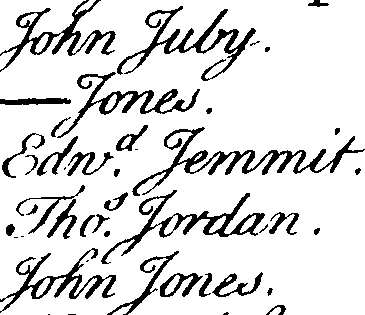 John Juby.
— Jones.
Edw.d Jemmit.
Tho.s Jordan.
John Jones.